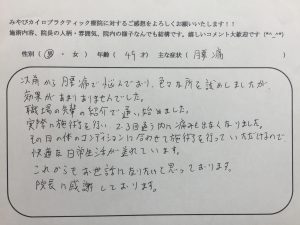 みやびカイロプラクティック療院に対するご感想をよろしくお願いいたします！！
施術内容、院長の人柄・雰囲気、院内の様子なんでも結構です。嬉しいコメント大歓迎です (*^_^*)
性別 ( 男 ・ 女 ) 年齢 ( 49 才 ) 主な症状 ( 腰痛 )
以前から腰痛で悩んでおり、色々な所を試しましたが
効果があまりありませんでした。
職場の先輩の紹介で通い始めました。
実際に施術を行い、2、3回通う内に痛みも出なくなりました。
その日の体のコンディションに合わせて施術を行っていただけるので
快適な日常生活が送れています。
これからもお世話になりたいと思っております。
院長に感謝しております。